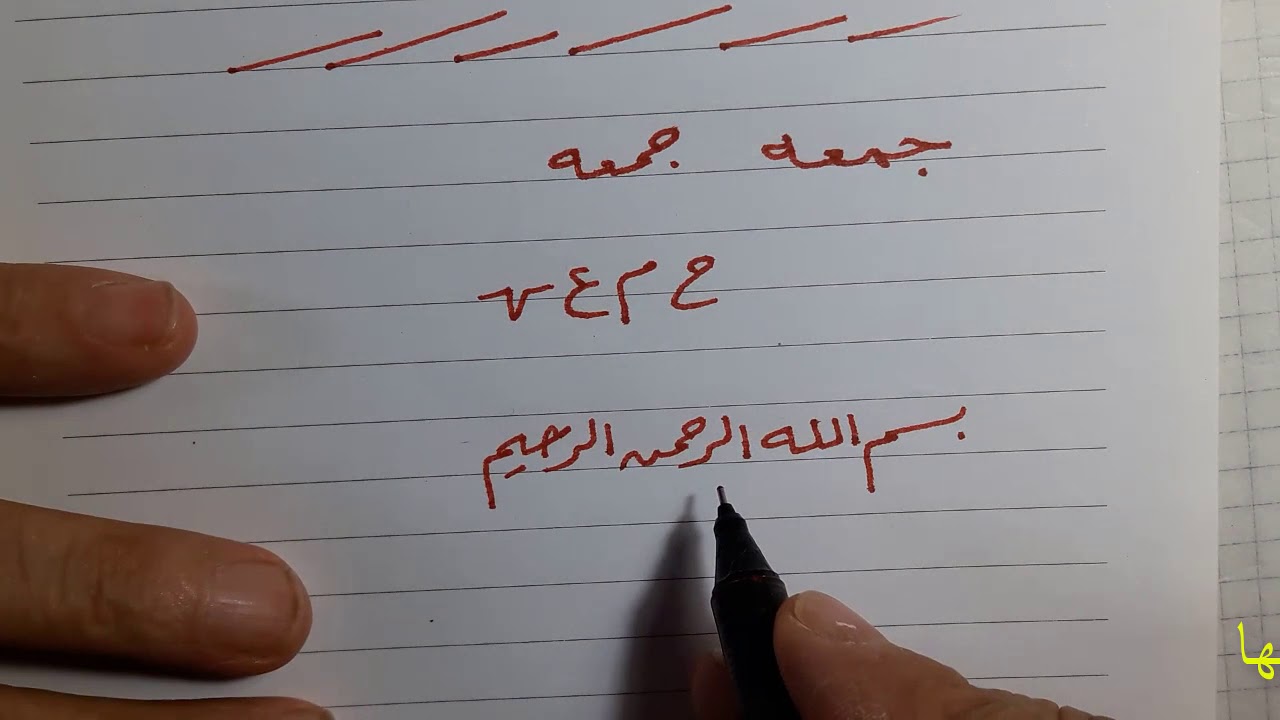 جمعه جمعه
ح م ع ـهـ
بسم الله الرحمن الرحيم
ها